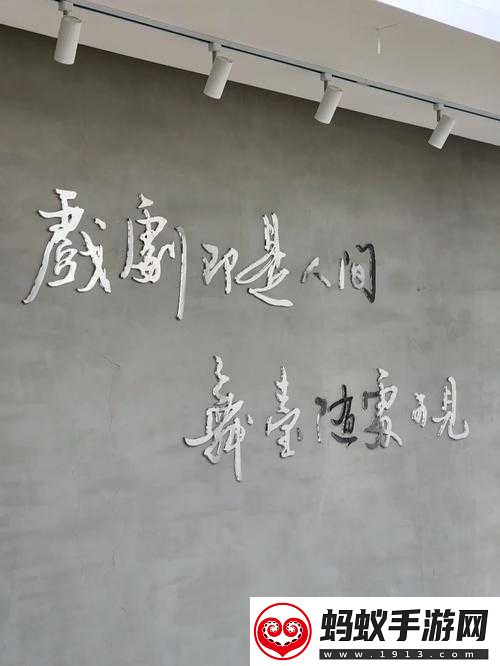 戲劇即是人间
舞臺随處可見
蚂蚁手游网
www.1913.com